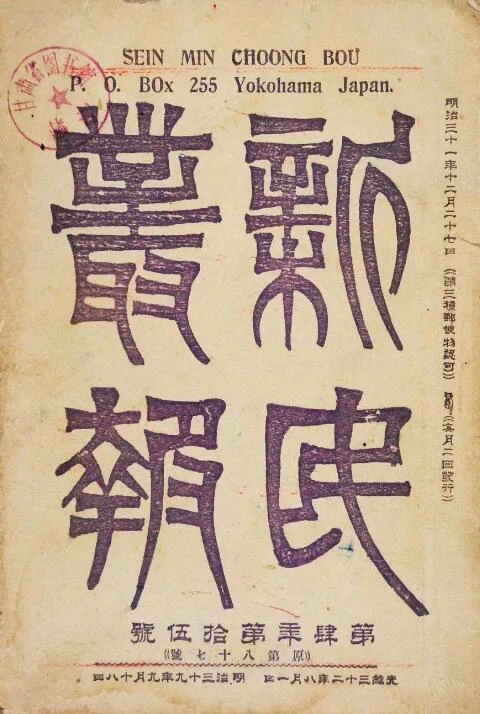 SEIN MIN CHOONG BOU
P. O. BOx 255 Yokohama Japan.
新民
叢報
明治三十一年十二月二十七日（第三種郵便物認可）（每月二回發行）
第肆年第拾伍號
（原第八十七號）
光緒三十二年八月一日 明治三十九年九月十八日
甘肅省图书館